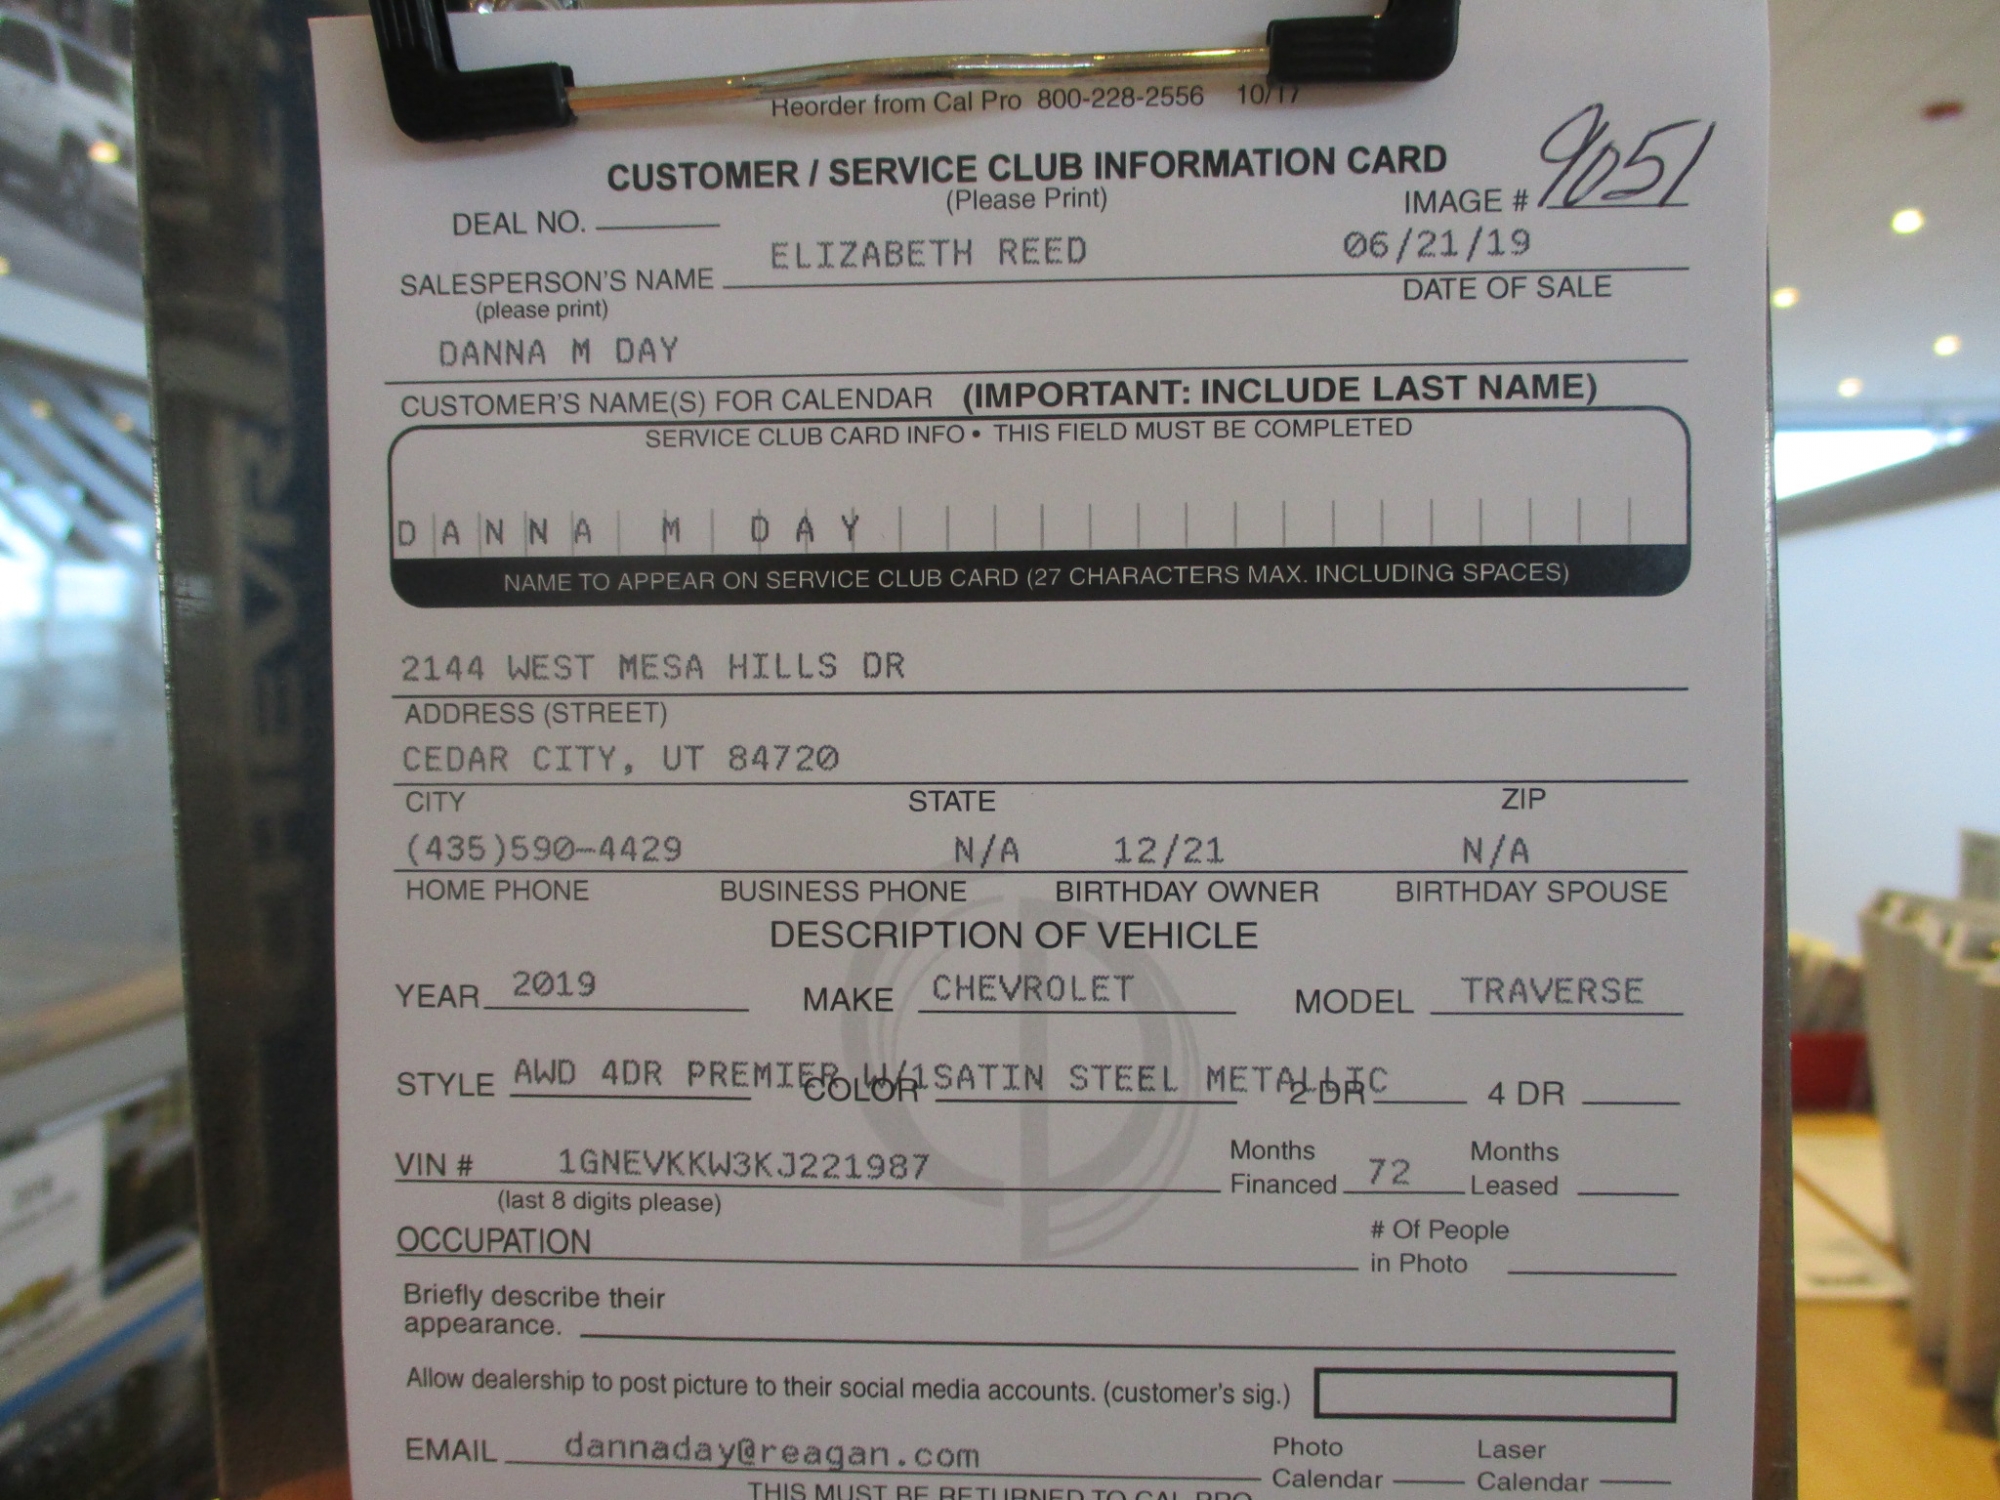 Reorder from Cal Pro 800-228-2556 10/17
CUSTOMER / SERVICE CLUB INFORMATION CARD
(Please Print)
IMAGE # 9051
DEAL NO.
ELIZABETH REED 06/21/19
SALESPERSON'S NAME DATE OF SALE
(please print)
DANNA M DAY
CUSTOMER'S NAME(S) FOR CALENDAR (IMPORTANT: INCLUDE LAST NAME)
SERVICE CLUB CARD INFO • THIS FIELD MUST BE COMPLETED
DANNA M DAY
NAME TO APPEAR ON SERVICE CLUB CARD (27 CHARACTERS MAX. INCLUDING SPACES)
2144 WEST MESA HILLS DR
ADDRESS (STREET)
CEDAR CITY, UT 84720
CITY STATE ZIP
(435)590-4429 N/A 12/21 N/A
HOME PHONE BUSINESS PHONE BIRTHDAY OWNER BIRTHDAY SPOUSE
DESCRIPTION OF VEHICLE
YEAR 2019 MAKE CHEVROLET MODEL TRAVERSE
STYLE AWD 4DR PREMIER W/1SATIN STEEL METALLIC
COLOR 2 DR 4 DR
VIN # 1GNEVKKW3KJ221987 Months Financed 72 Months Leased
(last 8 digits please)
OCCUPATION # Of People in Photo
Briefly describe their
appearance.
Allow dealership to post picture to their social media accounts. (customer's sig.)
EMAIL dannaday@reagan.com Photo Calendar Laser Calendar
THIS MUST BE RETURNED TO CAL PRO
CHEVROLET